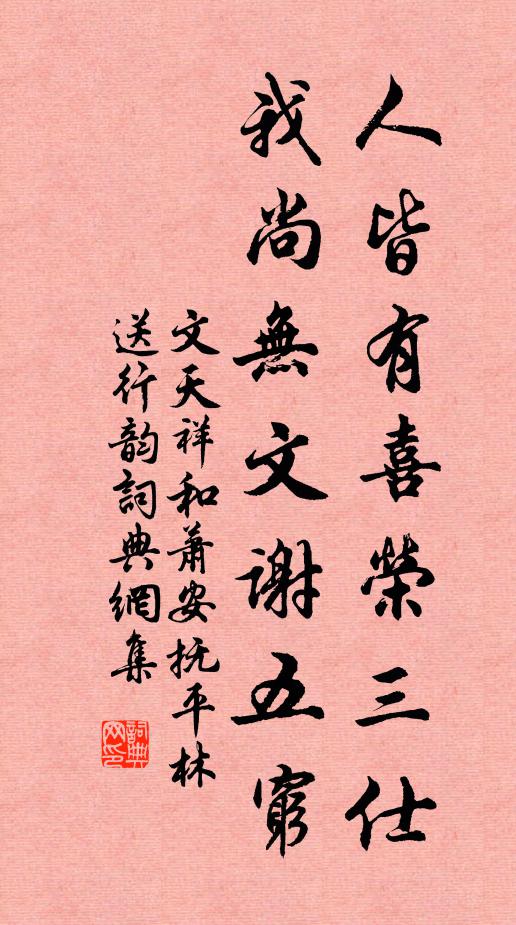 人皆有喜榮三仕
我尚無文謝五窮
文天祥和萧安抚平林
送行韵詞典網集
詞典
网印